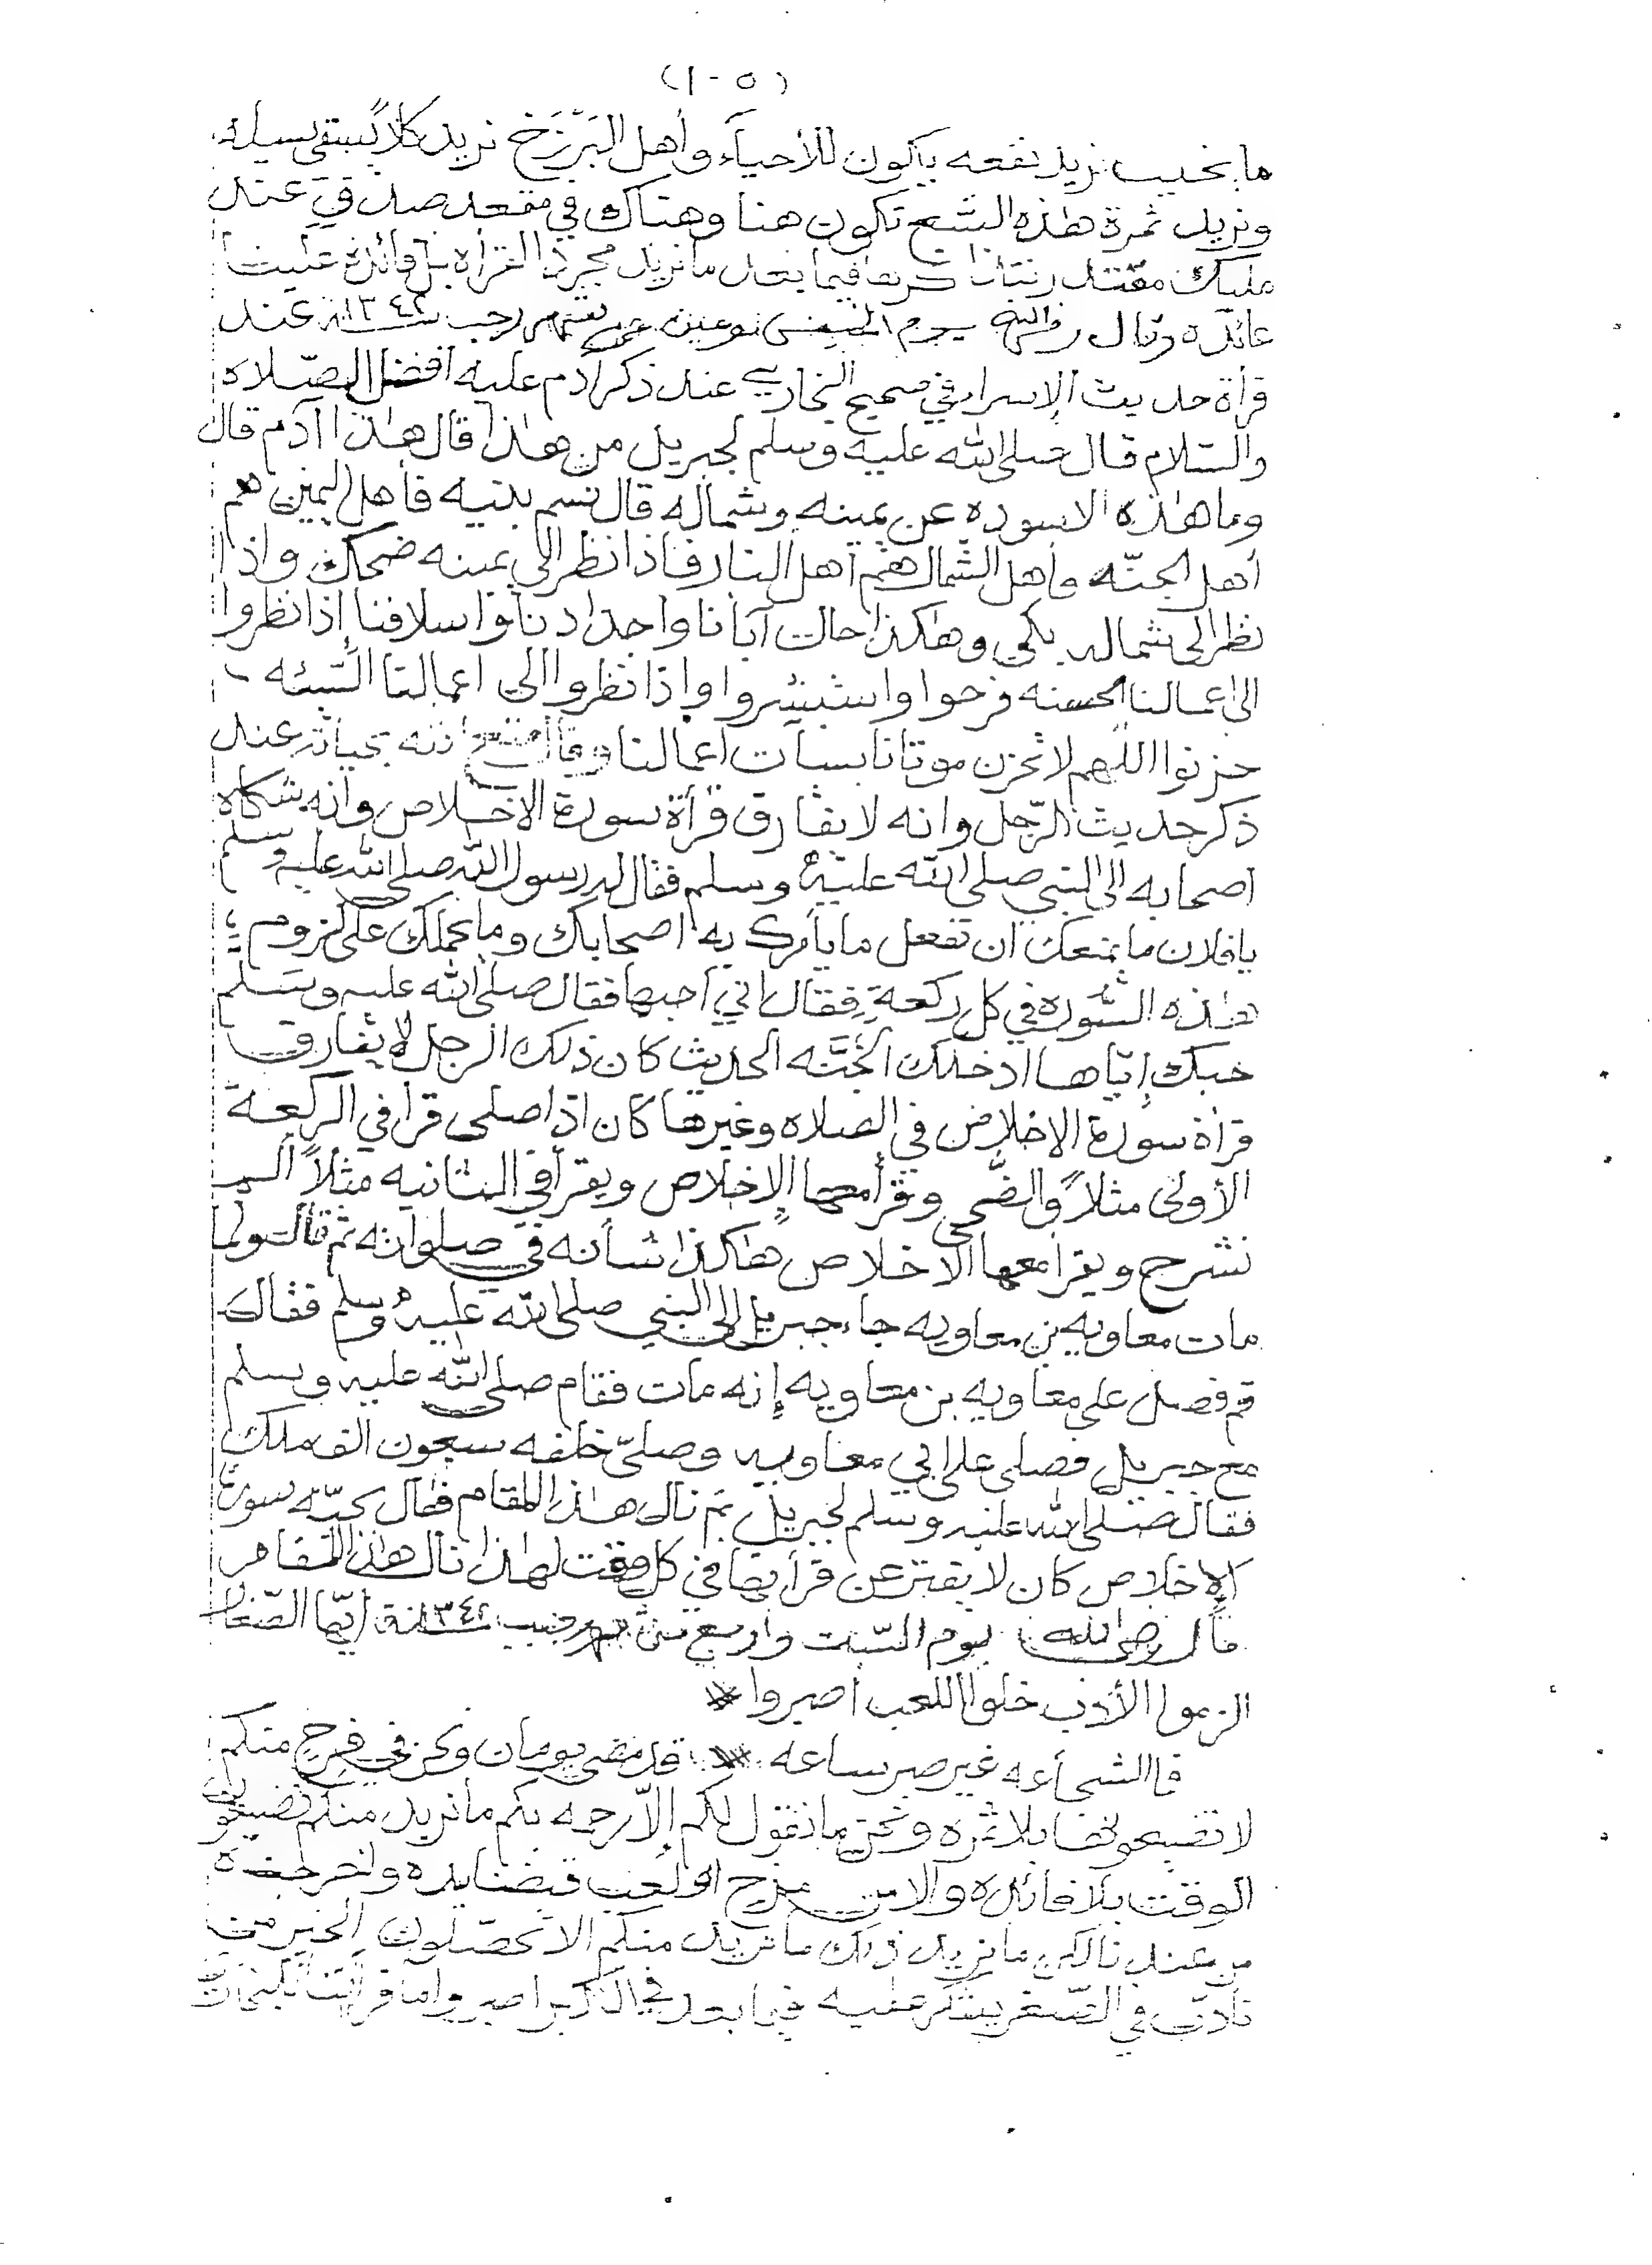 (١٠٥)
ما يخيب نريد نفعه يكون للأحياء وأهل البَرْزَخ نريد كلاً يستقي سيله
ونريد ثمرة هٰذه الشجرة تكون هنا وهناك في مقعد صدق عند
مليك مقتدر فيما بعد ما نريد مجرد القرأه بل فائدة علينا
عائده وقال رضي الله يوم الخميس شهر رجب سنة ١٣٤٢ عند
قرأة حديث الإسراء في صحيح البخاري عند ذكر آدم عليه افضل الصّلاه
والسّلام قال صلى الله عليه وسلم لجبريل من هٰذا قال هٰذا آدم قال
وما هٰذه الاسوده عن يمينه وشماله قال نسم بنيه فأهل اليمين هم
أهل الجنّه وأهل الشمال هم أهل النار فاذا نظر الى يمينه ضحك واذا
نظر الى شماله بكى وهٰكذا حالت آبانا واجدادنا واسلافنا إذا نظروا
الى اعمالنا الحسنه فرحوا واستبشروا وإذا نظروا الى اعمالنا السّيئه
حزنوا اللّهم لا تحزن موتانا بسيأت اعمالنا وقال عند
ذكر حديث الرّجل وانه لا يفارق قرأة سورة الاخلاص وانه شكاه
اصحابه الى النبي صلى الله عليه وسلم فقال له رسول الله صلى الله عليه وسلم
يا فلان ما يمنعك ان تفعل ما يأمرك به اصحابك وما يحملك على لزوم
هٰذه السّوره في كل ركعةٍ فقال اني أحبها فقال صلى الله عليه وسَلم
حبك إيّاها ادخلك الجَنَّه الحديث كان ذلك الرجل لا يفارق
قرأة سورة الإخلاص في الصلاه وغيرها كان اذا صلى قرأ في الركعة
الأولى مثلاً والضّحى وقرأ معها الإخلاص ويقرأ في الثانيه مثلاً الم
نشرح ويقرأ معها الاخلاص هٰكذا شأنه في صلواته ثم قال ولما
مات معاويه بن معاويه جاء جبريل الى النبي صلى الله عليه وسلم فقال
قم فصل على معاويه بن معاويه إنه مات فقام صلى الله عليه وسلم
مع جبريل فصلى على ابي معاويه وصلىّ خلفه سبعون الف ملك
فقال صلى الله عليه وسلم لجبريل بم نال هٰذا المقام فقال بحبّه سورة
الإخلاص كان لا يفتر عن قرأتها في كل وقت لهٰذا نال هٰذا المقام
قال رضي الله يوم السّبت واربع من شهر رجب سنة ١٣٤٢ ايّها الصّغار
الزموا الأدب خلوا اللعب اصبروا
فما الشجاعه غير صبر ساعه قد مضى يومان ونحن في فرح منكم
لا تضيعو تعبنا بلا ثمره ونحن ما نقول لكم إلاّ رحمه بكم ما نريد منكم تضيعون
الوقت بلا فائده والا من مزح او لعب قبضنا يده واخرجناه
من عندنا لكن ما نريد ذلك ما نريد منكم الا تحصّلون الخير من
تأدّب في الصّغر يشكر عليه فيما بعد في الاكبر اصبروا